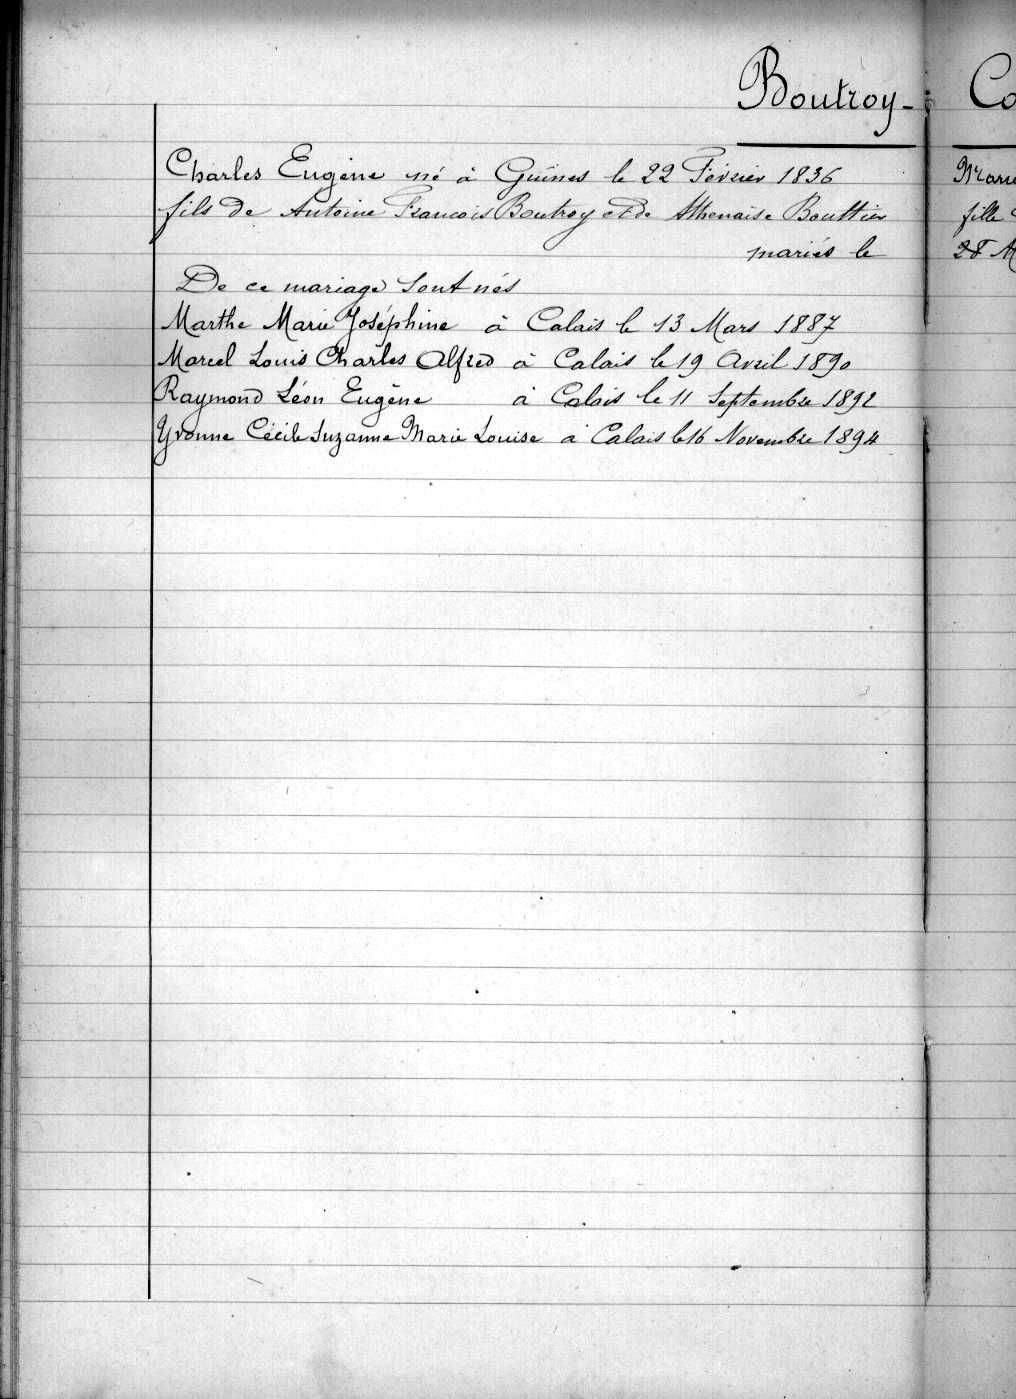 Boutroy - Co
Charles Eugène né à Guines le 22 Février 1836
fils de Antoine François Boutroy et de Athenaise Bouttier
mariés le
De ce mariage sont nés
Marthe Marie Joséphine à Calais le 13 Mars 1887
Marcel Louis Charles Alfred à Calais le 19 Avril 1890
Raymond Léon Eugène à Calais le 11 Septembre 1892
Yvonne Cécile Suzanne Marie Louise à Calais le 16 Novembre 1894
Marie
fille
28 M